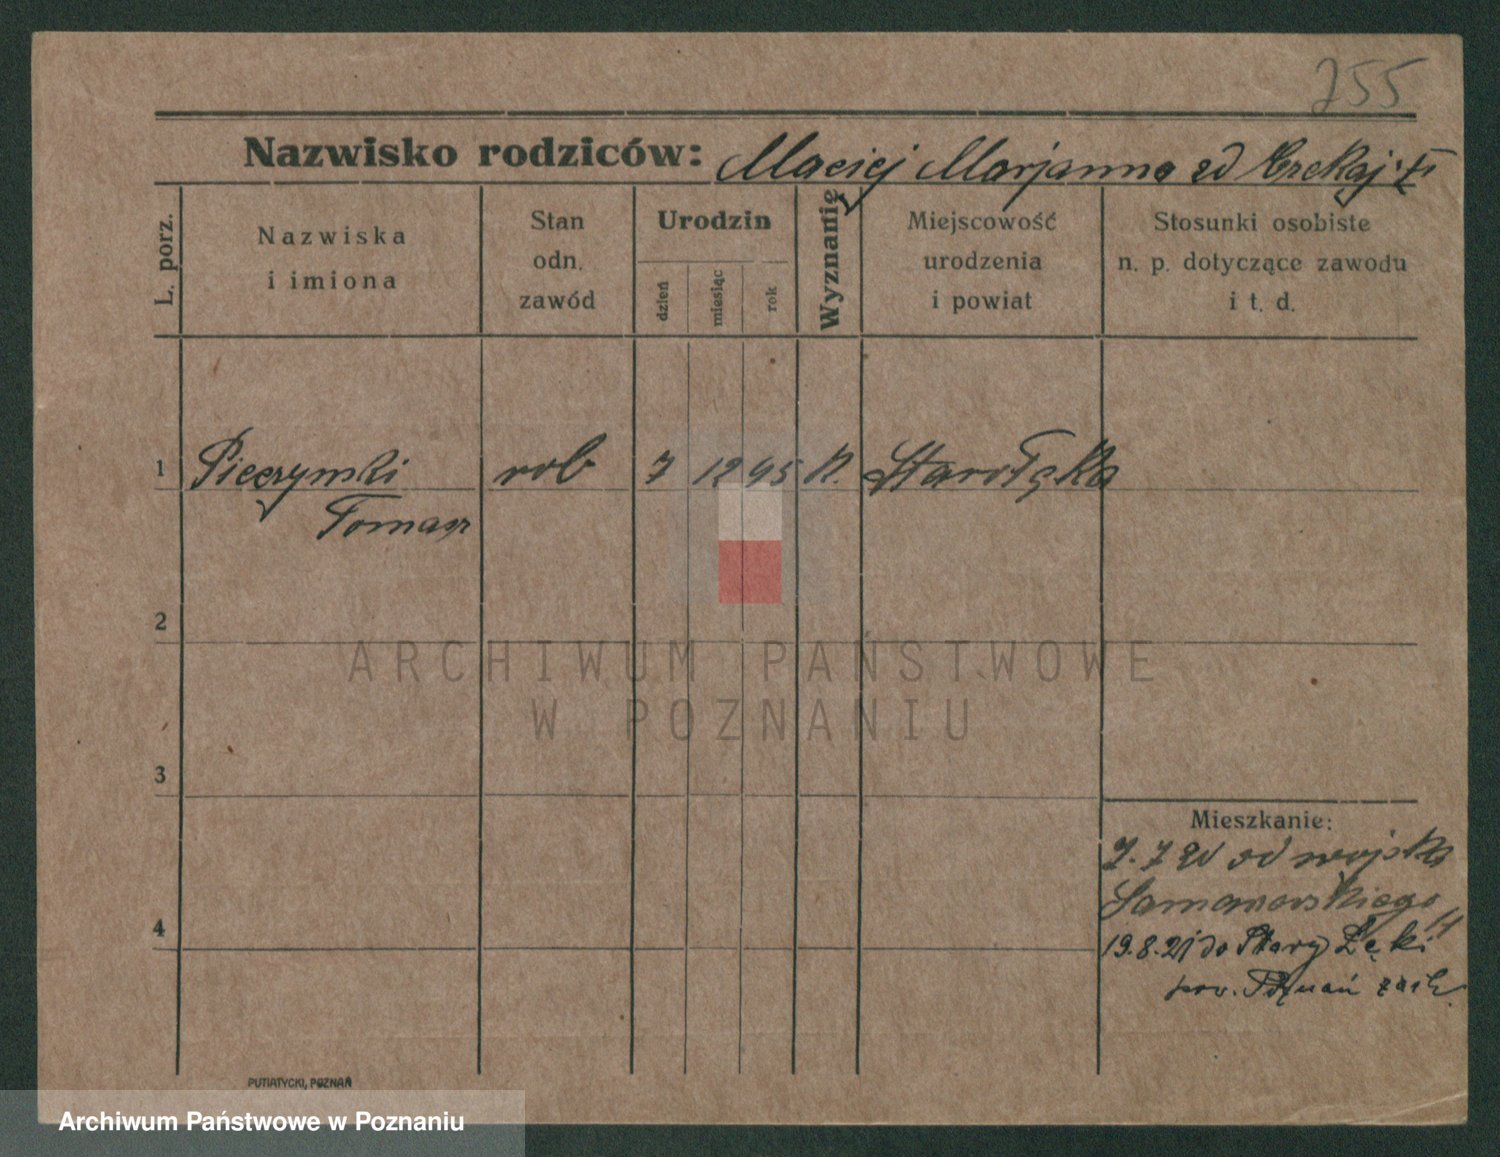 255
Nazwisko rodziców: Maciej Marjanna zd
L. porz.
Nazwiska
i imiona
Stan
odn.
zawód
Urodzin
dzień
miesiąc
rok
Wyznanie
Miejscowość
urodzenia
i powiat
Stosunki osobiste
n. p. dotyczące zawodu
i t. d.
1 Pieczynski rob 7 12 95 K. Starołęka
Tomasz
2
3
4
Mieszkanie:
7. 7 20 od wojska
19.8.21 do Stary Łęki
pow. Poznań zach.
PUTIATYCKI, POZNAŃ
ARCHIWUM PAŃSTWOWE
W POZNANIU
Archiwum Państwowe w Poznaniu